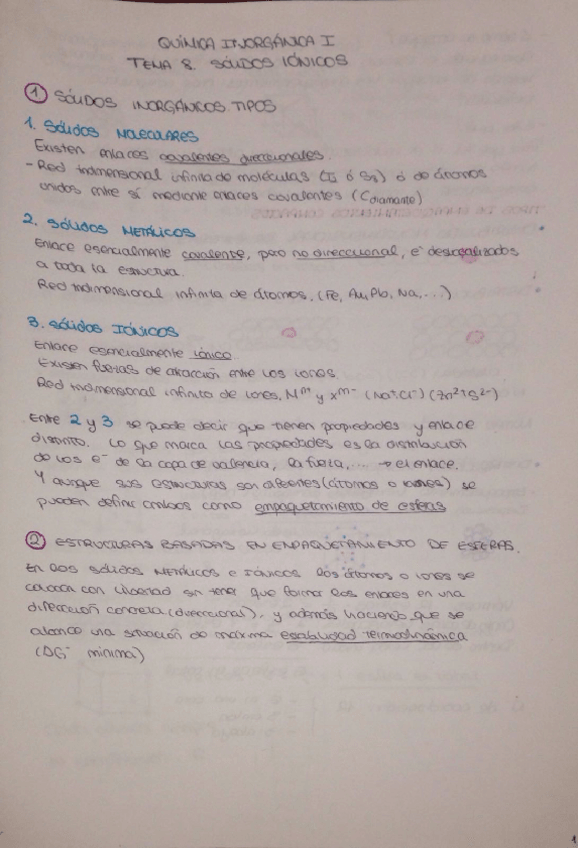 QUÍMICA INORGÁNICA I
TEMA 8. SÓLIDOS IÓNICOS
1 SÓLIDOS INORGÁNICOS TIPOS
1. SÓLIDOS MOLECULARES
Existen enlaces covalentes direccionales.
- Red tridimensional infinita de moléculas (I2 ó S8) ó de átomos
unidos entre sí mediante enlaces covalentes (Cdiamante)
2. SÓLIDOS METÁLICOS
Enlace esencialmente covalente, pero no direccional, e deslocalizados
a toda la estructura.
Red tridimensional infinita de átomos. (Fe, Au, Pb, Na, ...)
3. SÓLIDOS IÓNICOS
Enlace esencialmente iónico.
Existen fuerzas de atracción entre los iones.
Red tridimensional infinita de iones, Mm+ y Xm- (Na+Cl-) (Zn2+S2-)
Entre 2 y 3 se puede decir que tienen propiedades y enlace
distinto. Lo que marca las propiedades es la distribución
de los e- de la capa de valencia, la fuerza, ... → el enlace.
Y aunque sus estructuras son diferentes (átomos o iones) se
pueden definir ambos como empaquetamiento de esferas
2 ESTRUCTURAS BASADAS EN EMPAQUETAMIENTO DE ESFERAS.
En los sólidos METÁLICOS e IÓNICOS los átomos o iones se
colocan con libertad sin tener que formar los enlaces en una
dirección concreta (direccional), y además haciendo que se
alcance una situación de máxima estabilidad termodinámica
(DG- mínima)
1